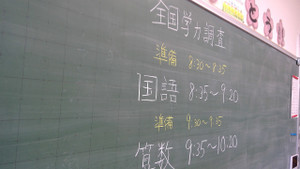 全国学力調査
準備 8:30~8:35
国語 8:35~9:20
準備 9:30~9:35
算数 9:35~10:20